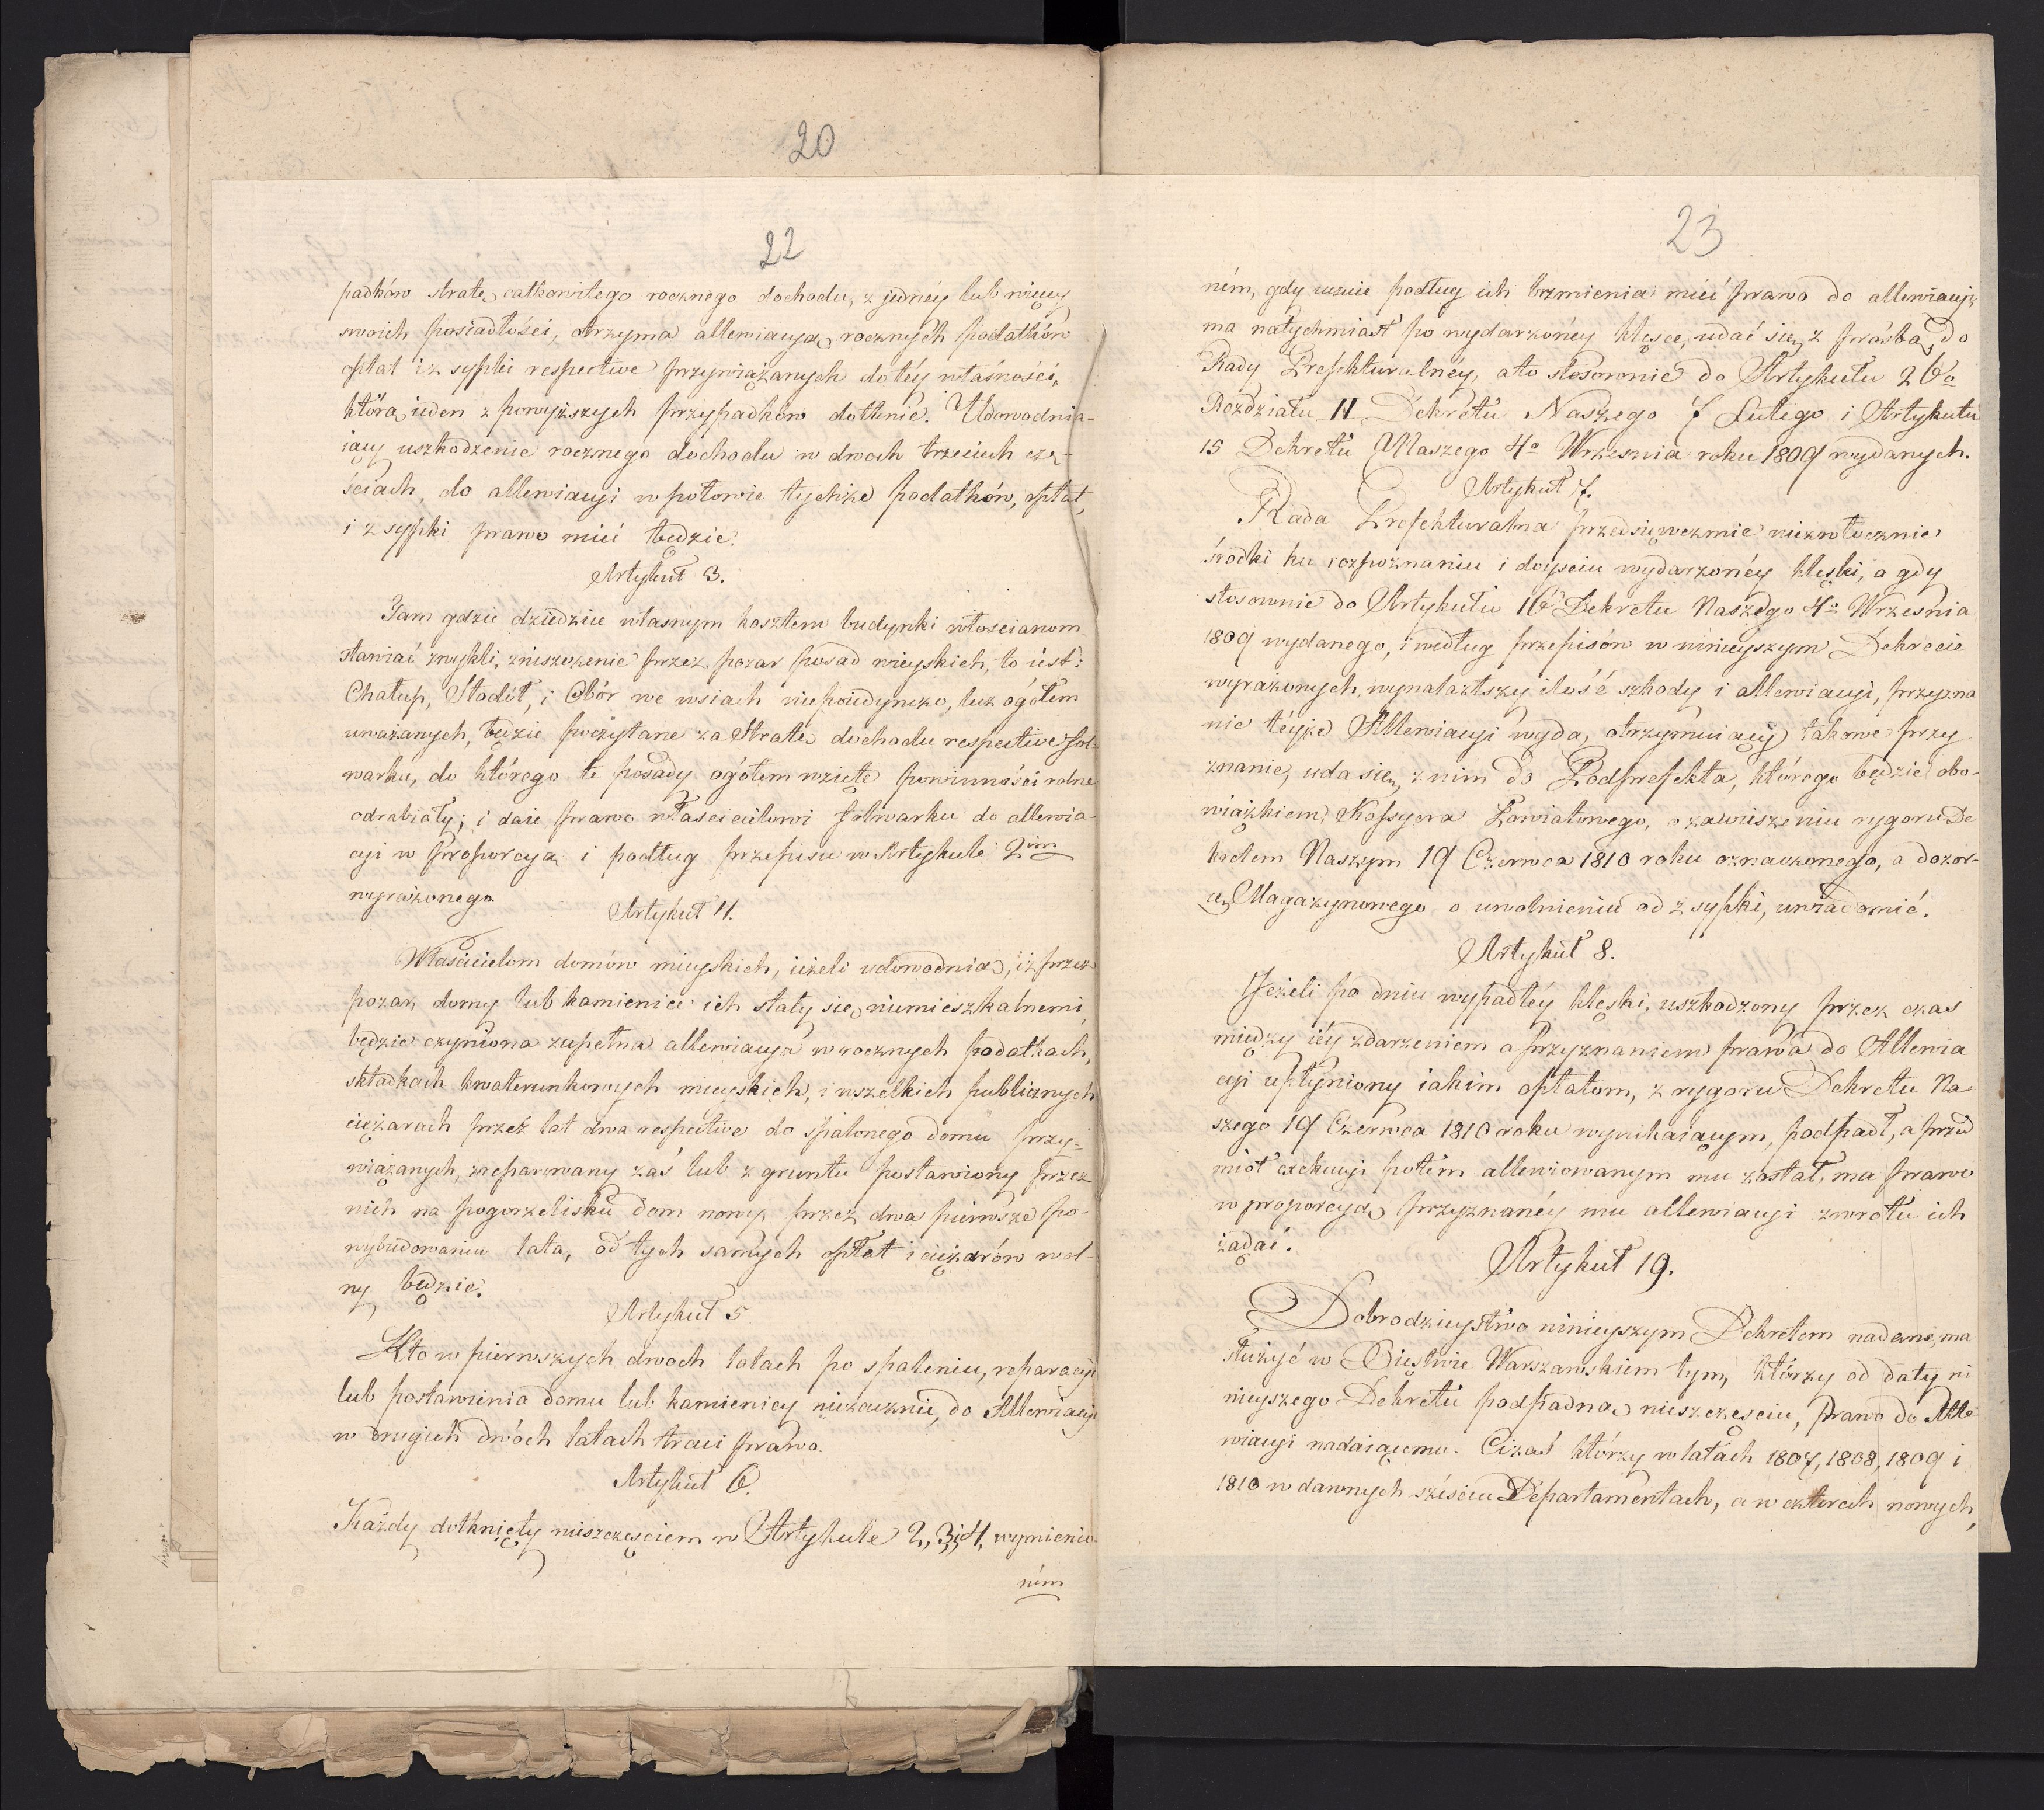 20
22
padków stratę całkowitego rocznego dochodu, z jednéy lub więcey
swoich posiadłości, otrzyma allewiacyą rocznych podatków
opłat i zsypki respective przywiązanych do téy własności,
którą ieden z powyższych przypadków dotknie. Udowodnia-
iący uszkodzenie rocznego dochodu w dwoch trzecich czę-
ściach, do allewiacyi w połowie tychże podatków, opłat,
i zsypki prawo mieć będzie.
Artykuł 3.
Tam gdzie dziedzice własnym kosztem budynki włoscianom
stawiać zwykli, zniszczenie przez pożar posad wieyskich, to iest:
Chałup, Stodół, i Obór we wsiach niepoiedynczo, lecz ogółem
uważanych, będzie poczytane za stratę dochodu respective fol-
warku, do którego te posady ogółem wzięte powinności rolne
odrabiały; i daie prawo właścicielowi folwarku do allewia-
cyi w proporcyą i podług przepisu w Artykule 2im
wyrażonego.
Artykuł 4.
Właścicielom domów mieyskich, ieżeli udowodnią, iż przez
pożar, domy lub kamienice ich stały się niemieszkalnemi,
będzie czyniona zupełna allewiacya w rocznych podatkach,
składkach kwaterunkowych mieyskich, i wszelkich publicznych
ciężarach przez lat dwa respective do spalonego domu przy-
wiązanych, zreparowany zaś lub z gruntu postawiony przez
nich na pogorzelisku dom nowy, przez dwa pierwsze po-
wybudowaniu lata, od tych samych opłat i ciężarów wol-
ny będzie.
Artykuł 5
Kto w pierwszych dwoch latach po spaleniu, reparacyi
lub postawienia domu lub kamienicy niezacznie, do Allewiacyi
w drugich dwóch latach traci prawo.
Artykuł 6.
Każdy dotknięty nieszczęściem w Artykule 2, 3, i 4, wymienio-
ném
23
ném, gdy uczuie podług ich brzmienia mieć prawo do allewiacyi,
ma natychmiast po wydarzonéy klęsce, udać się z prośbą do
Rady Prefekturalnéy, a to stosownie do Artykułu 26o
Rozdziału II Dekretu Naszego 7 Lutego i Artykułu
15 Dekretu Naszego 4o Września roku 1809 wydanych.
Artykuł 7.
Rada Prefekturalna przedsięweźmie niezwłocznie
środki ku rozpoznaniu i doyściu wydarzonéy klęski, a gdy
stosownie do Artykułu 16 Dekretu Naszego 4o Września
1809 wydanego, i według przepisów w ninieyszym Dekrecie
wyrażonych, wynalazłszy ilość szkody i allewiacyi, przyzna
nie téyże Allewiacyi wyda, otrzymuiący takowe przy
znanie, uda się z nim do Podprefekta, którego będzie obo-
wiązkiem, Kassyera Powiatowego, o zawieszeniu rygoru De
kretem Naszym 19 Czerwca 1810 roku oznaczonego, a dozor-
cę Magazynowego o uwolnieniu od zsypki, uwiadomić.
Artykuł 8.
Jeżeli po dniu wypadłéy klęski, uszkodzony przez czas
między iéy zdarzeniem a przyznaniem prawa do Allewia
cyi upłynionỳ iakim opłatom, z rygoru Dekretu Na
szego 19 Czerwca 1810 roku wynikaiącym, podpadł, a przed
miot exekucyi potém allewiowanym mu został, ma prawo
w proporcyą przyznanéy mu allewiacyi zwrotu ich
żądać.
Artykuł 19.
Dobrodzieystwo ninieyszym Dekretem nadane, ma
służyć w Xięstwie Warszawskiem tym, którzy od daty ni
nieyszego Dekretu podpadną nieszczęściu, prawo do Alle
wiacyi nadaiącemu. Ci zaś którzy w latach 1807, 1808, 1809 i
1810 w dawnych sześciu Departamentach, a w czterech nowych,